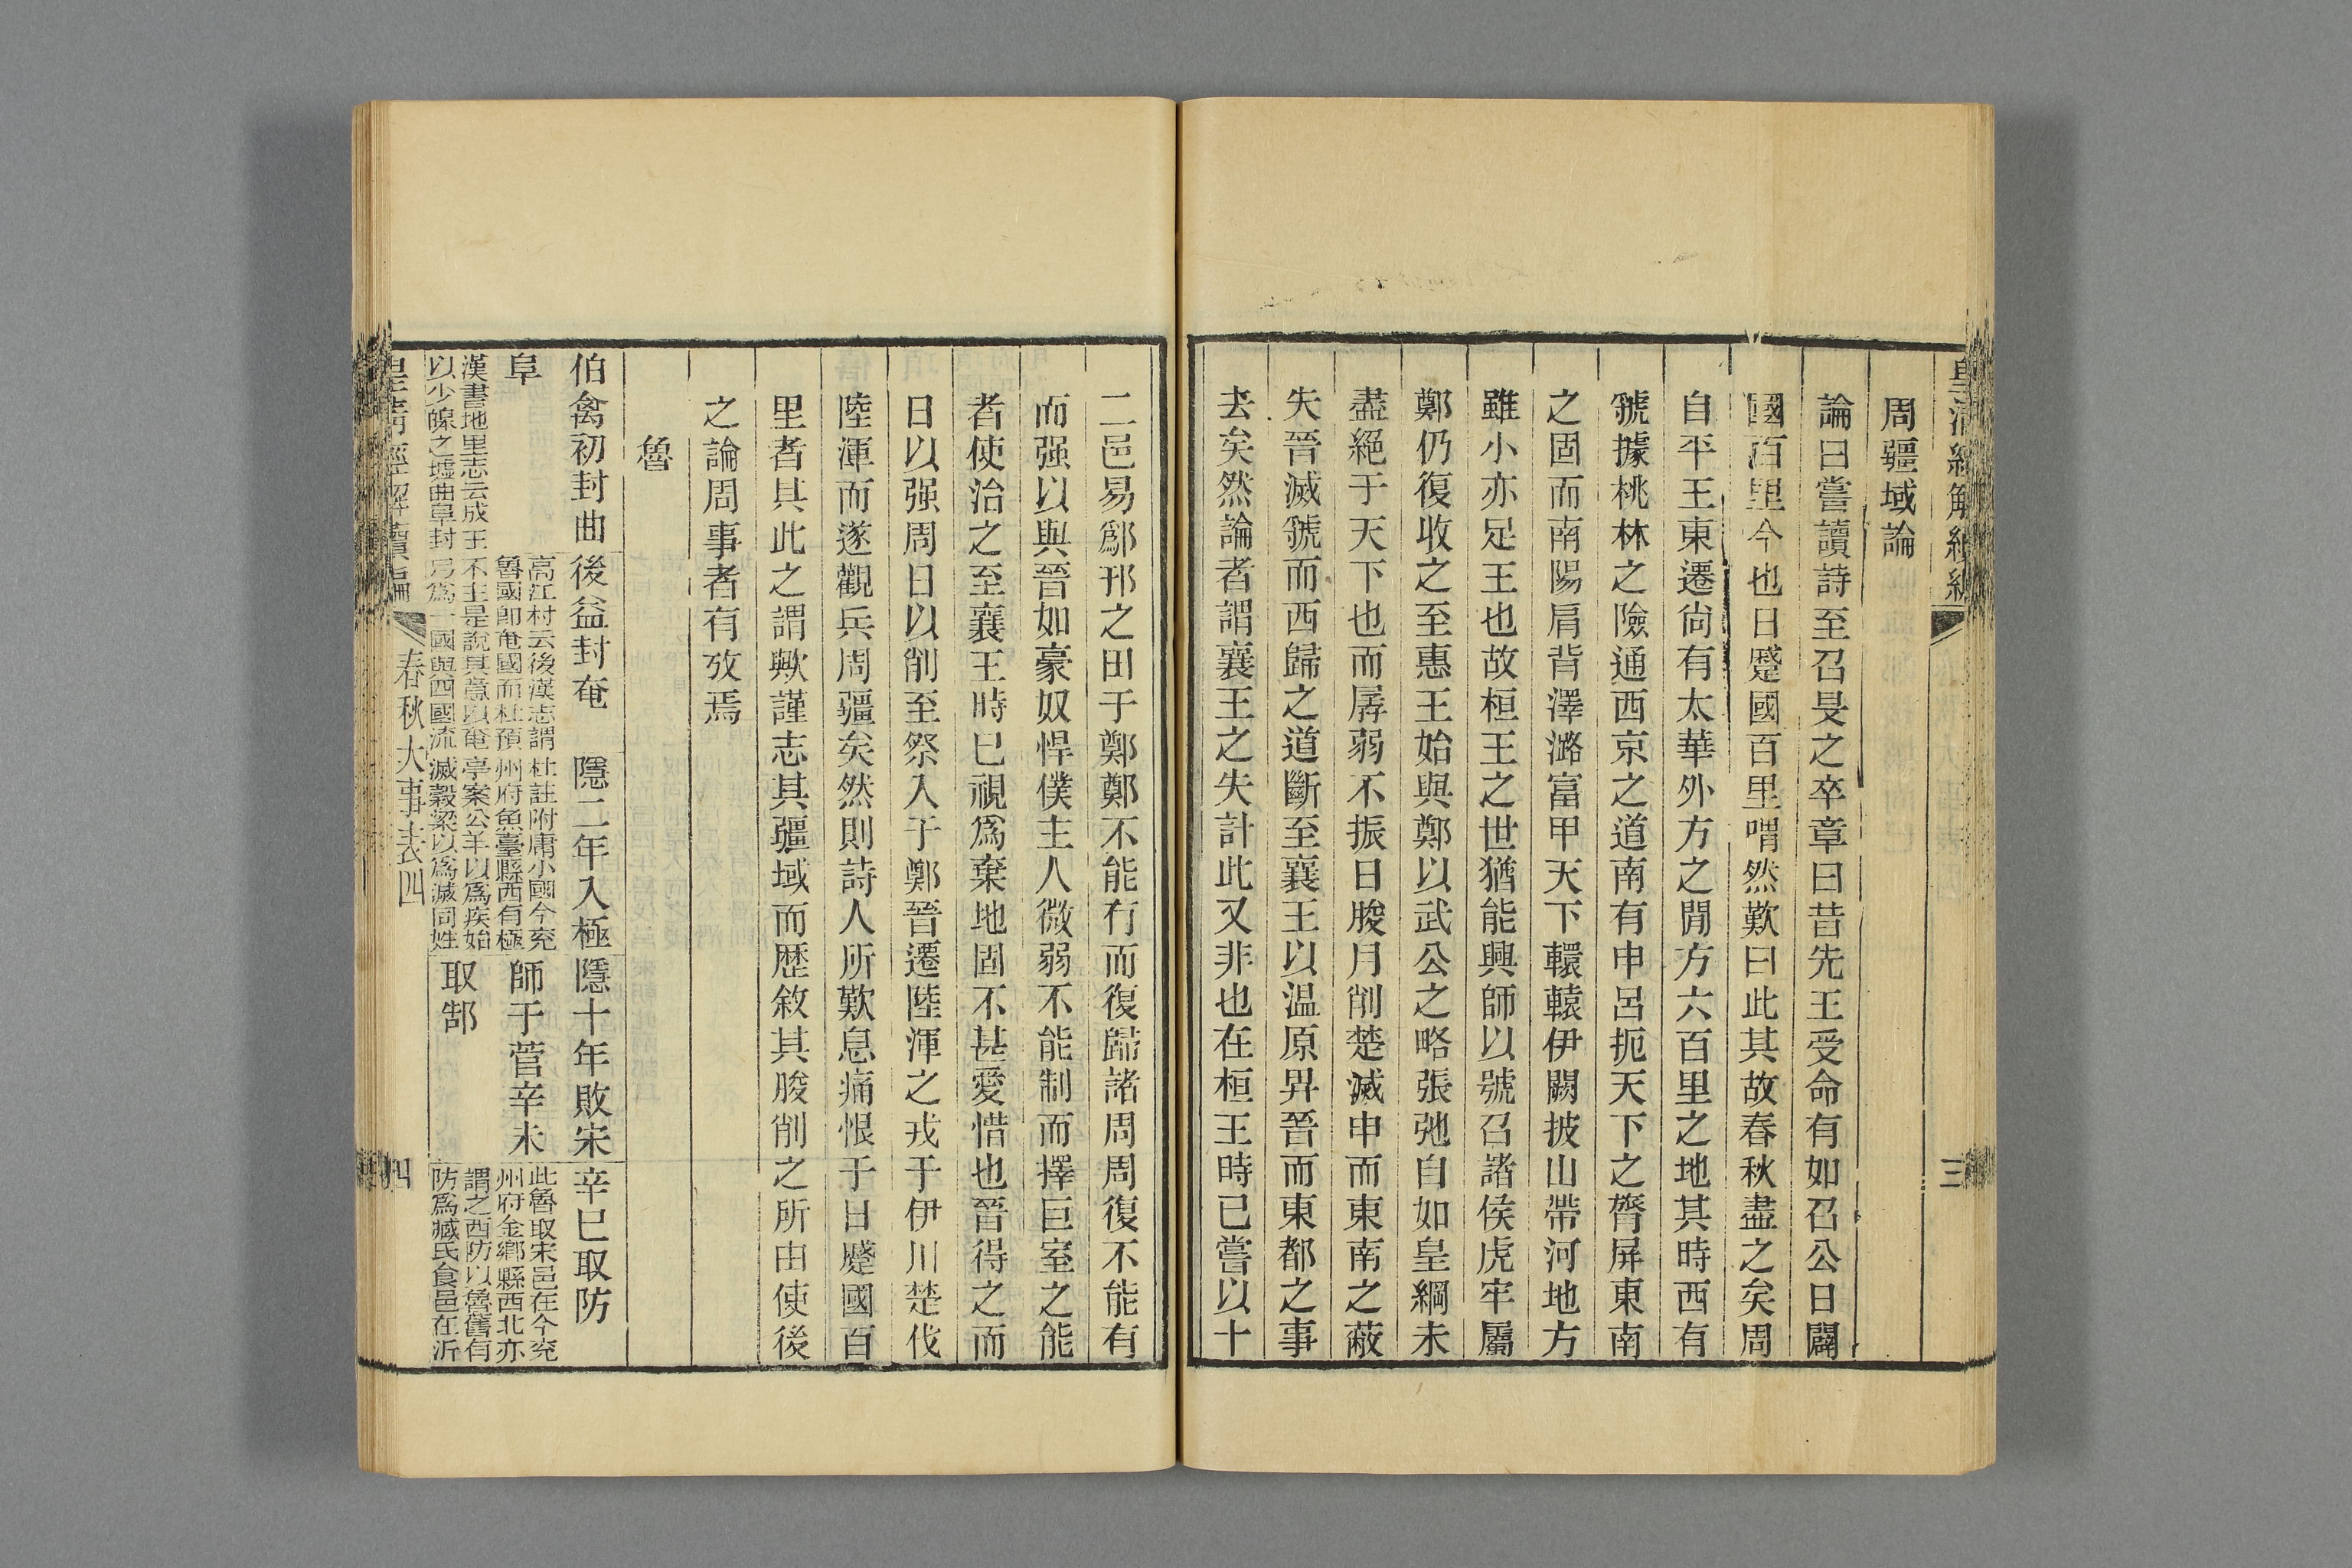 周疆域論
論曰嘗讀詩至召旻之卒章曰昔先王受命有如召公日闢
國百里今也日蹙國百里喟然歎曰此其故春秋盡之矣周
自平王東遷尚有太華外方之閒方六百里之地其時西有
虢據桃林之險通西京之道南有申呂扼天下之膂屏東南
之固而南陽肩背澤潞富甲天下轘轅伊闕披山帶河地方
雖小亦足王也故桓王之世猶能興師以號召諸侯虎牢屬
鄭仍復收之至惠王始與鄭以武公之略張弛自如皇綱未
盡絕于天下也而孱弱不振日朘月削楚滅申而東南之蔽
失晉滅虢而西歸之道斷至襄王以温原畀晉而東都之事
去矣然論者謂襄王之失計此又非也在桓王時已嘗以十
三
二邑易鄔邘之田于鄭鄭不能有而復歸諸周周復不能有
而强以與晉如豪奴悍僕主人微弱不能制而擇巨室之能
者使治之至襄王時已視爲棄地固不甚愛惜也晉得之而
日以强周日以削至祭入于鄭晉遷陸渾之戎于伊川楚伐
陸渾而遂觀兵周疆矣然則詩人所歎息痛恨于日蹙國百
里者其此之謂歟謹志其疆域而歷敘其朘削之所由使後
之論周事者有攷焉
魯
伯禽初封曲
阜
漢書地里志云成王
以少皞之墟曲阜封
後益封奄
高江村云後漢志謂
魯國即奄國而杜預
不主是說其意以奄
爲一國與四國流
隱二年入極
杜註附庸小國今兖
州府魚臺縣西有極
亭案公羊以爲疾始
滅穀梁以爲滅同姓
隱十年敗宋
師于菅辛未
取郜
辛巳取防
此魯取宋邑在今兖
州府金鄉縣西北亦
謂之西防以魯舊有
防爲臧氏食邑在沂
皇清經解續編
春秋大事表四
四